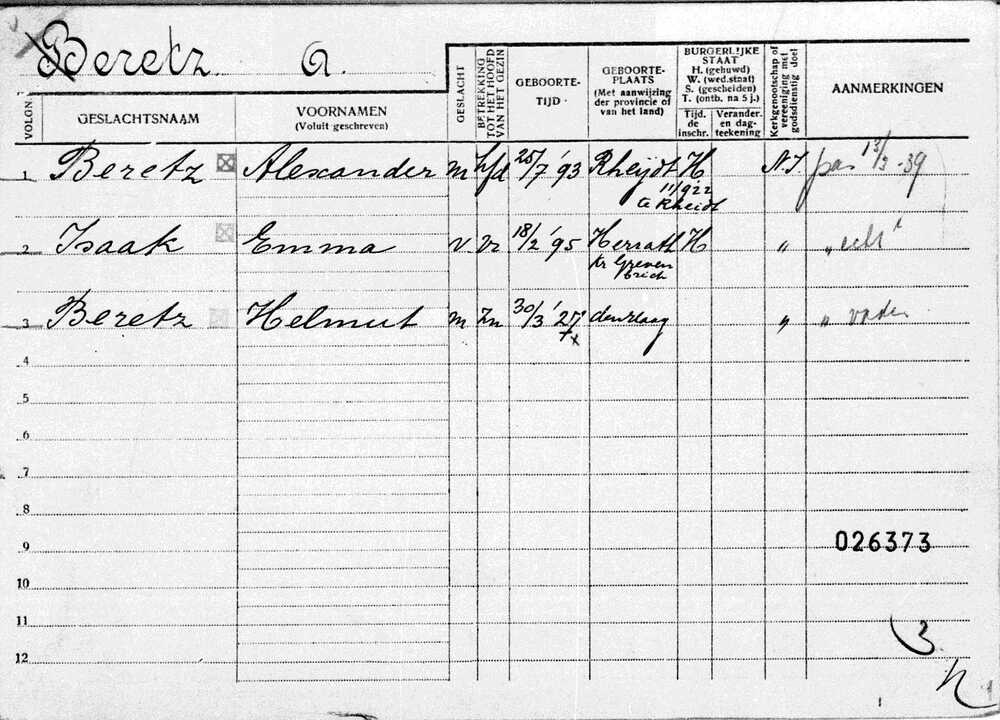 Beretz A.
VOLGN.
GESLACHTSNAAM
VOORNAMEN
(Voluit geschreven)
GESLACHT
BETREKKING TOT HET HOOFD VAN HET GEZIN
GEBOORTE-
TIJD
GEBOORTE-
PLAATS
(Met aanwijzing
der provincie of
van het land)
BURGERLIJKE
STAAT
H. (gehuwd)
W. (wed.staat)
S. (gescheiden)
T. (ontb. na 5 j.)
Tijd.
de
inschr.
Verander.
en dag-
teekening
Kerkgenootschap of
vereeniging met
godsdienstig doel
AANMERKINGEN
1 Beretz Alexander m hfd 25/7 '93 Rheydt H N.I pas 13/3-39
11/9 22
te Rheidt
2 Isaak Emma v. Vr 18/2 '95 Herrath H " "
Kr Greven
brich
3 Beretz Helmut m Zn 30/3 '27 den Haag " " vader
4
5
6
7
8
9
026373
10
11
12